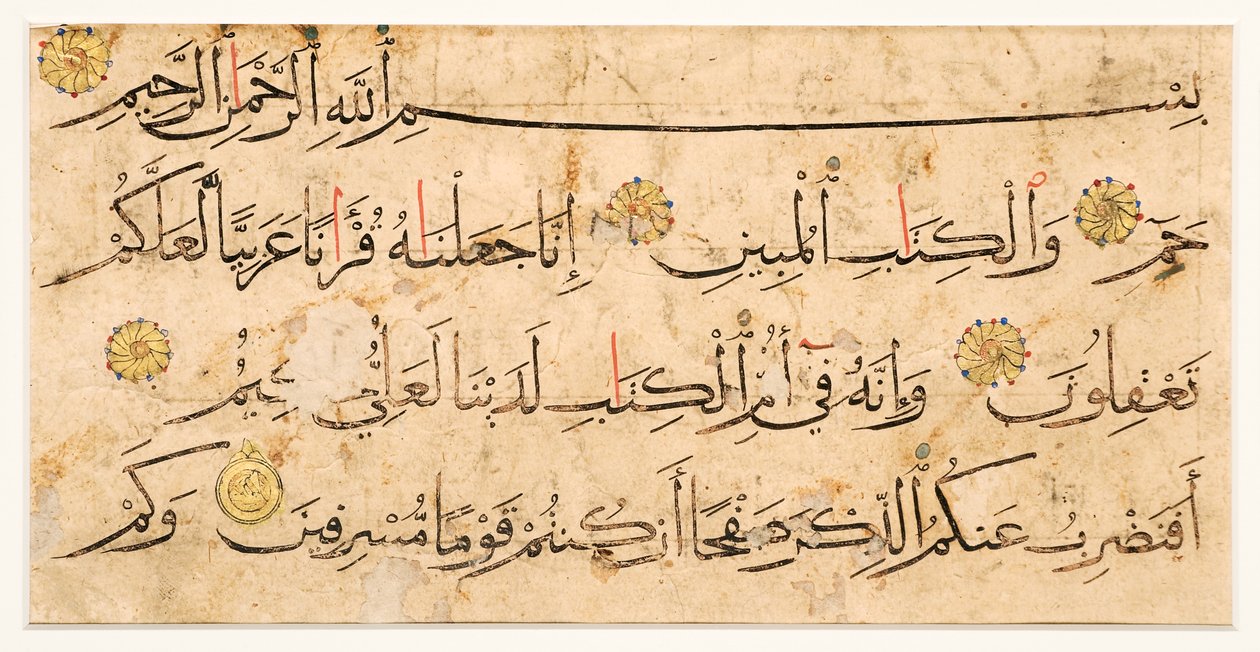 بِسْمِ ٱللَّهِ ٱلرَّحْمَٰنِ ٱلرَّحِيمِ
حمٓ وَٱلْكِتَٰبِ ٱلْمُبِينِ إِنَّا جَعَلْنَٰهُ قُرْءَٰنًا عَرَبِيًّا لَّعَلَّكُمْ
تَعْقِلُونَ وَإِنَّهُ فِيٓ أُمِّ ٱلْكِتَٰبِ لَدَيْنَا لَعَلِيٌّ حَكِيمٌ
أَفَنَضْرِبُ عَنكُمُ ٱلذِّكْرَ صَفْحًا أَن كُنتُمْ قَوْمًا مُّسْرِفِينَ وَكَمْ